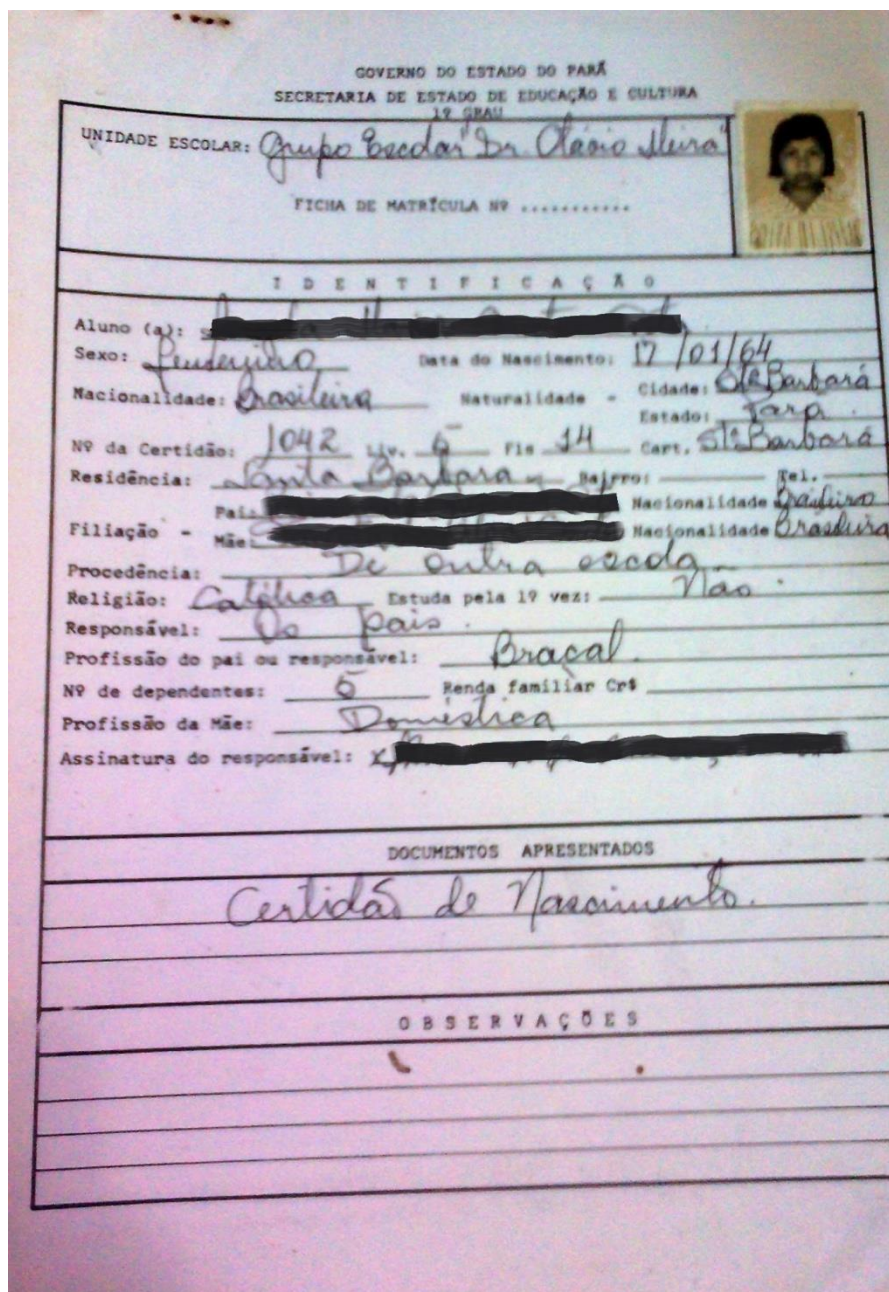 GOVERNO DO ESTADO DO PARÁ
SECRETARIA DE ESTADO DE EDUCAÇÃO E CULTURA
1º GRAU
UNIDADE ESCOLAR: Grupo Escolar "Dr. Otávio Meira"
FICHA DE MATRÍCULA Nº ...........
IDENTIFICAÇÃO
Aluno (a):
Sexo: Femenino Data do Nascimento: 17/01/64
Nacionalidade: Brasileira Naturalidade - Cidade: Stª Barbará
Estado: Pará.
Nº da Certidão: 1042 Liv. 6 Fls 14 Cart. Stª Barbará
Residência: Santa Barbara - Bairro: Tel.
Pai: Nacionalidade Brasileiro
Filiação - Mãe: Nacionalidade Brasileira
Procedência: De outra escola
Religião: Católica Estuda pela 1º vez: Não.
Responsável: Os pais.
Profissão do pai ou responsável: Braçal.
Nº de dependentes: 6 Renda familiar Cr$
Profissão da Mãe: Doméstica
Assinatura do responsável: x
DOCUMENTOS APRESENTADOS
Certidão de Nascimento.
OBSERVAÇÕES